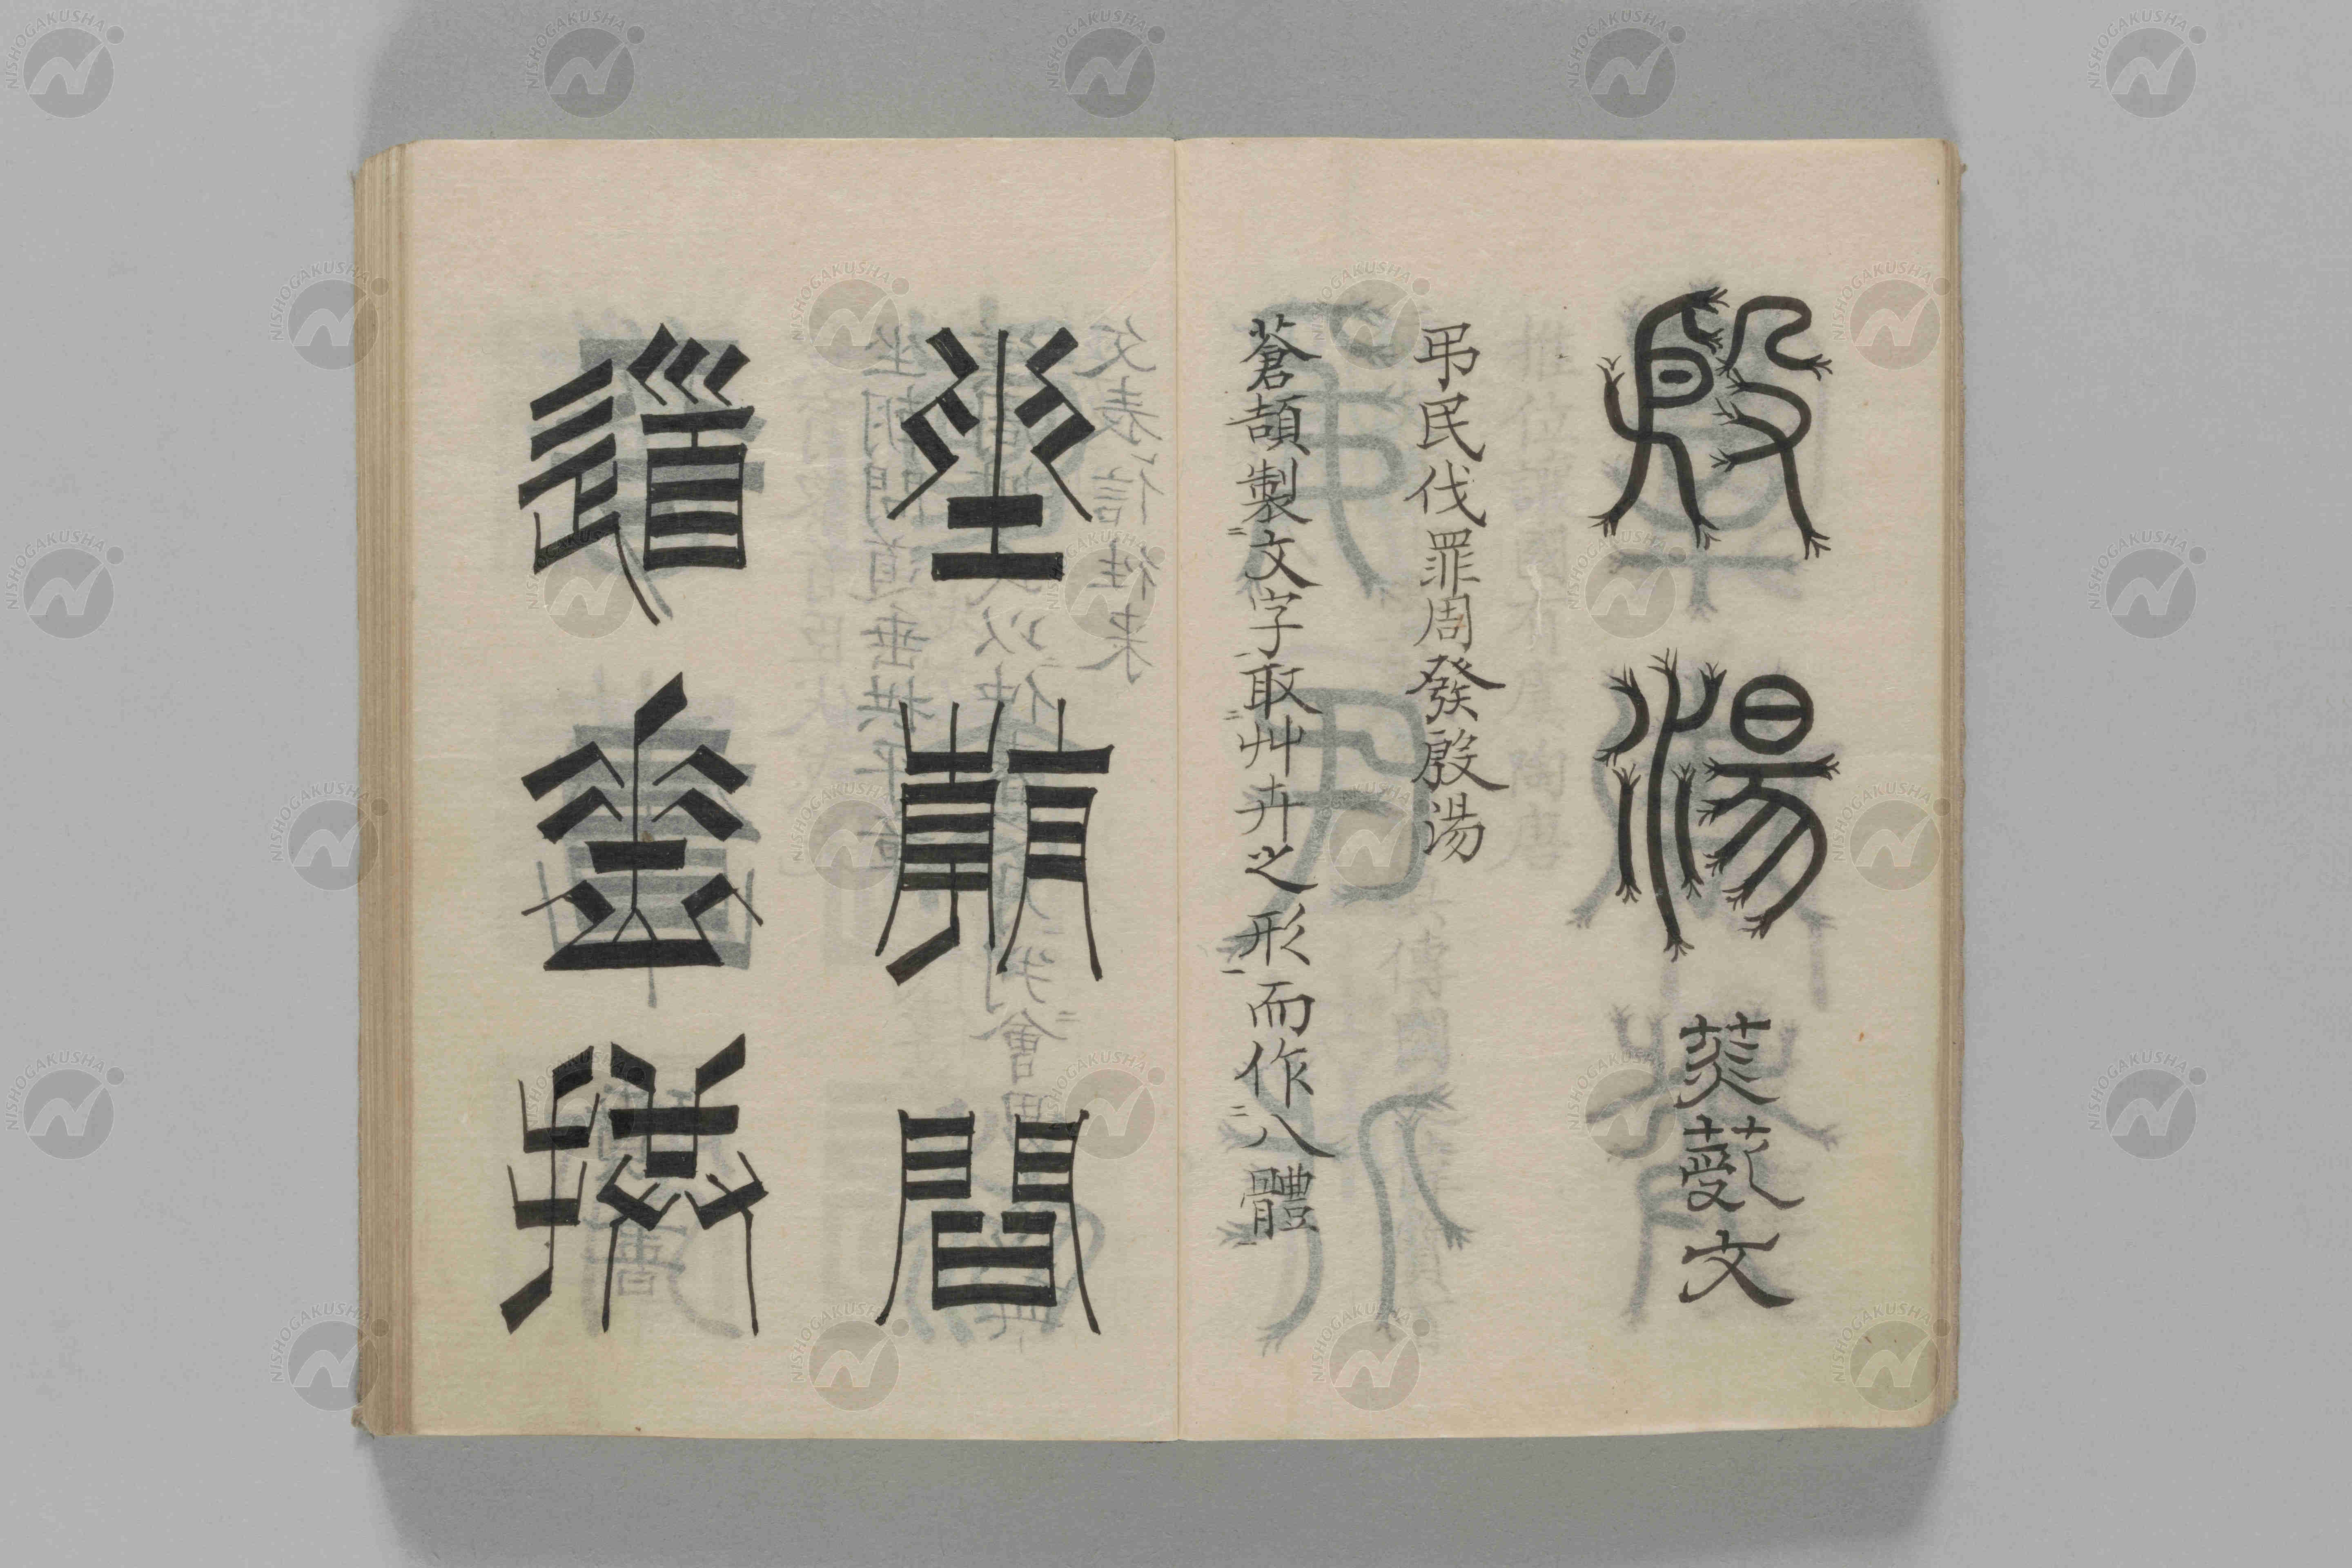 殷湯
𦭳薆文
弔民伐罪周發殷湯
蒼頡製文字敢艸卉之形而作八體
坐朝問
道垂拱
NISHOGAKUSHA